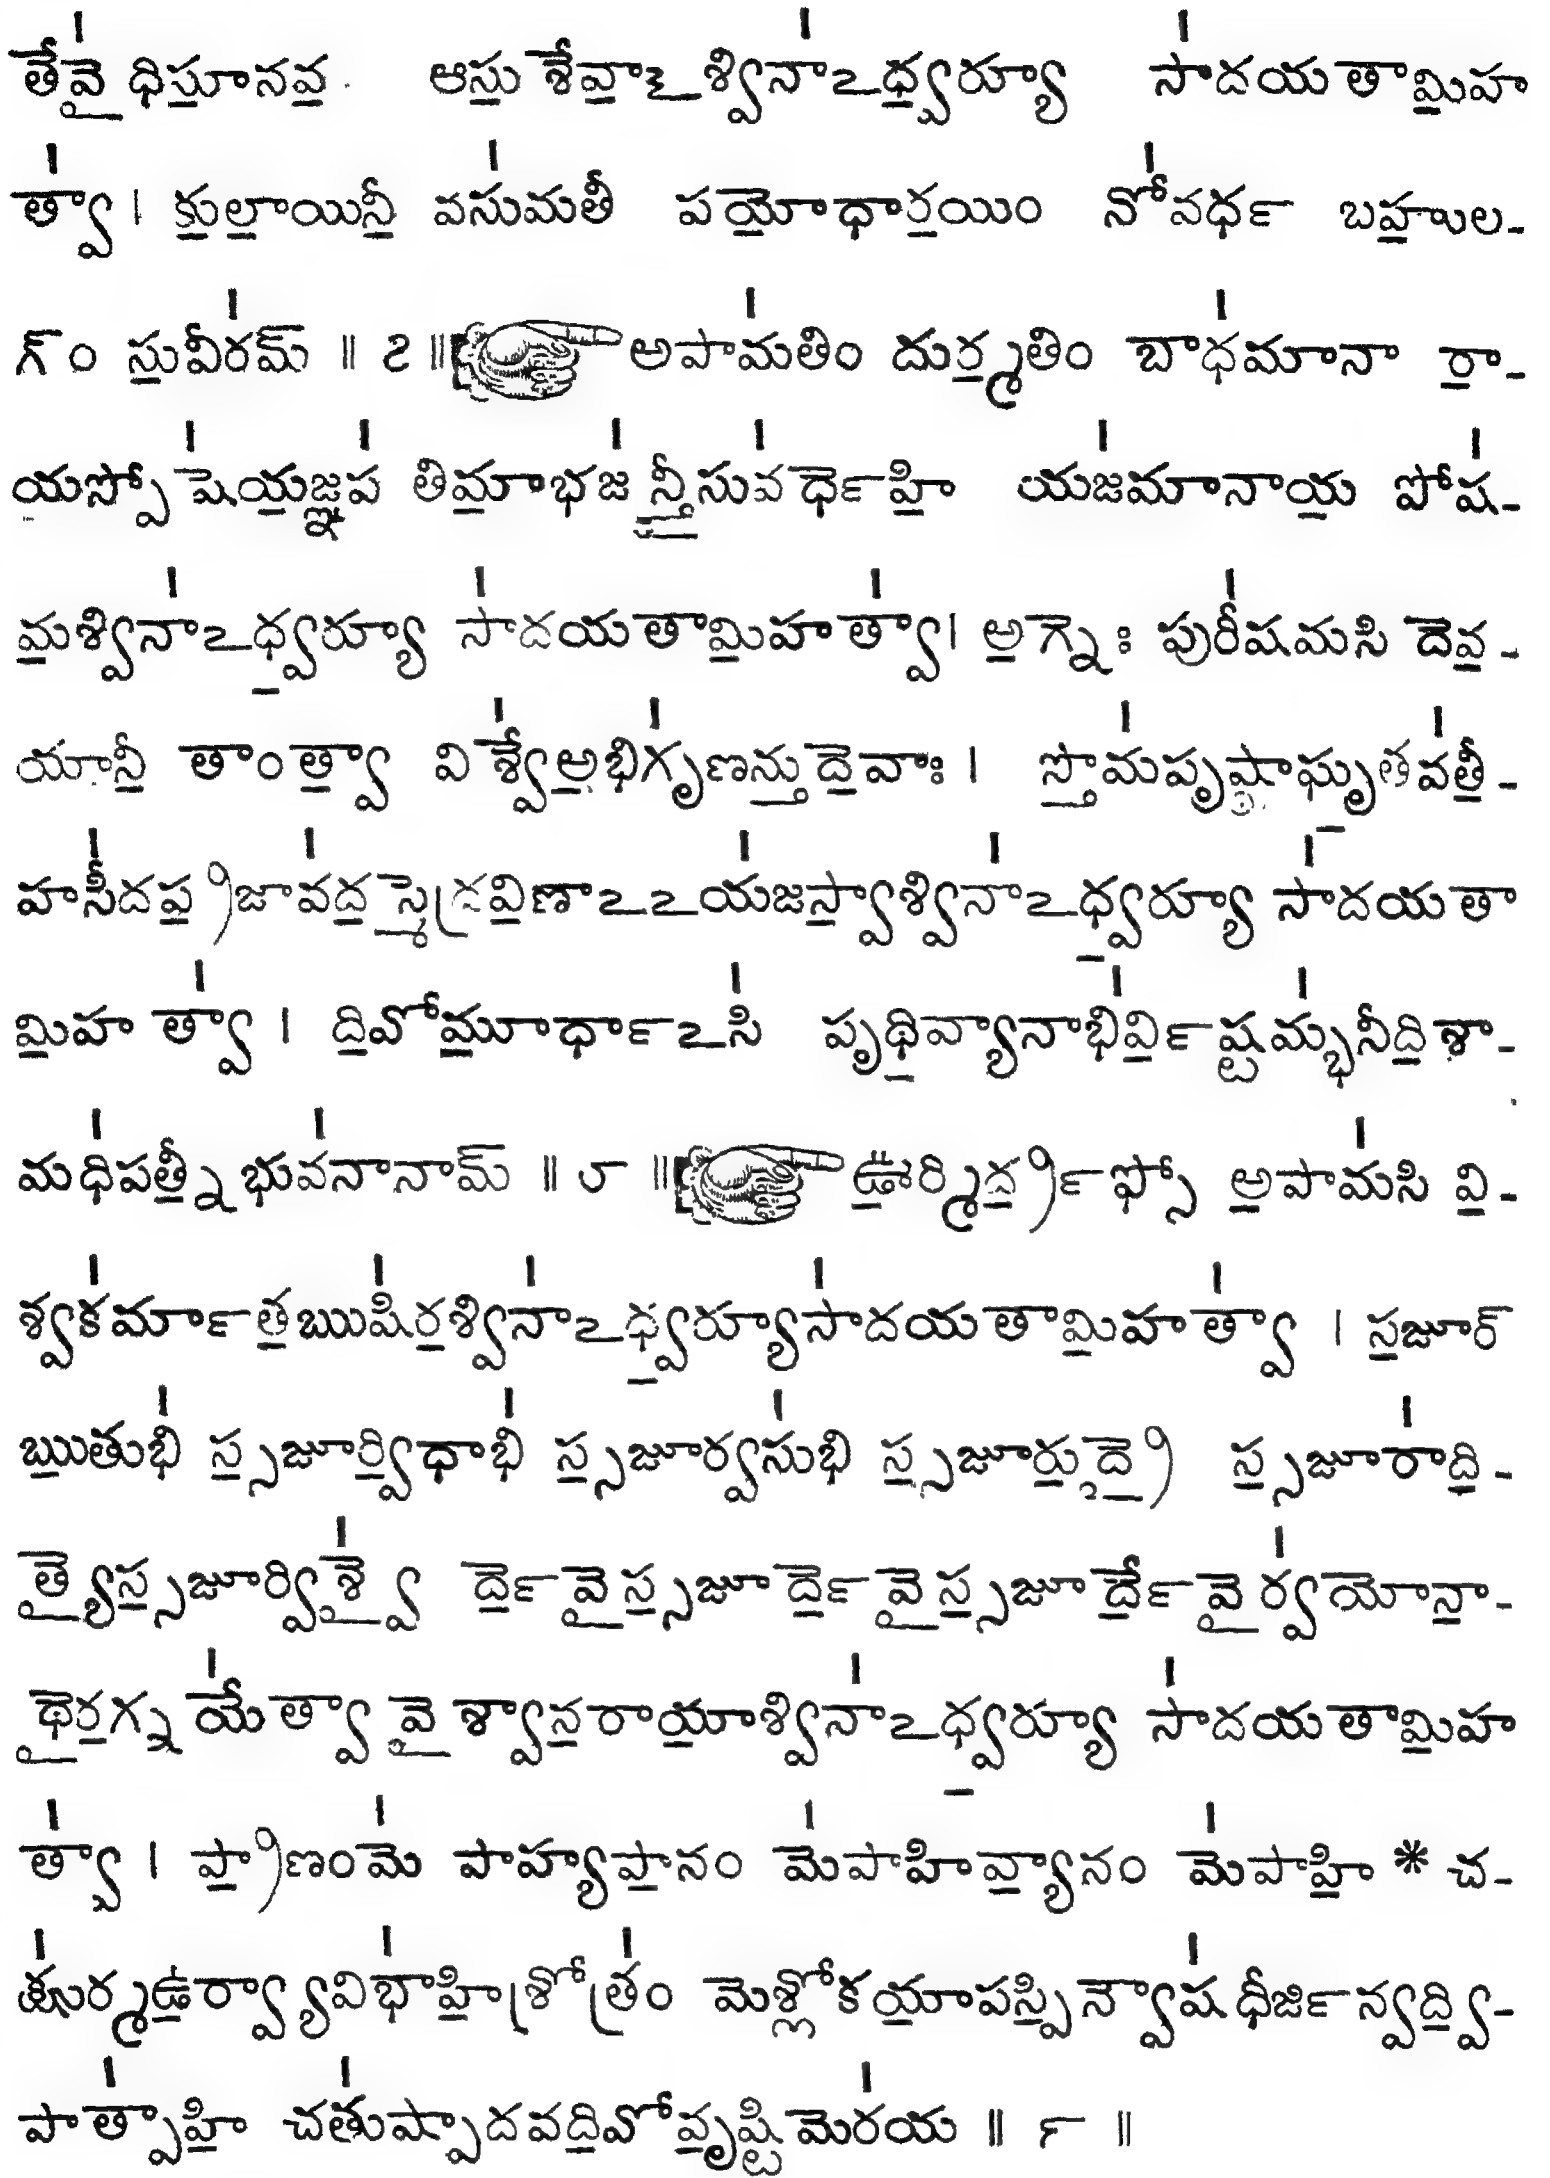 తే॑వై॒ ధిస్తూ॒నవ॒ ఆస్తు॒ శేవా॒ఽశ్వినా॑ఽధ్వ॒ర్యూ సా॑దయతామి॒హ
త్వా॑ । కు॒లా॒యినీ॒ వసు॑మతీ పయో॒ధార॒యిం నో॑వధ౯ బహు॒ల-
గ్‌ం సు॒వీర॑మ్ ॥ ౭ ॥ ☞ అపామ॑తిం దుర్మ॒తిం బాధ॑మానా రా॒-
యస్పో॒షే॑య॒జ్ఞప॑తిమా॒భజ॑న్తీ॒సువ॑ధే౯హి॒ యజ॑మానాయ॒ పోష॑-
మ॒శ్వినా॑ఽధ్వ॒ర్యూ సా॑దయతామి॒హత్వా॑। అ॒గ్నెః పురీ॑షమసి దెవ॒-
యానీ॒ తాంత్వా॒ విశ్వే॑అ॒భిగృ॑ణన్తు॒దె॒వాః । స్తొ॒మ॑పృష్ఠా॒ఘృ॒తవ॑తీ॒-
హసీ॑దప్ర॒జావ॑ద॒స్మెద్ర॒వి॒ణాఽఽయ॑జస్వా॒శ్వినా॑ఽధ్వ॒ర్యూ సా॑దయతా
మి॒హ త్వా॑ । ది॒వోమూ॒ధా౯ఽసి॑ పృథి॒వ్యానాభి॑ర్వి॒౯ష్టమ్భ॑నీది॒శా-
మధి॑పత్నీ॒ భువ॑నానామ్ ॥ ౮ ॥ ☞ ఊ॒ర్మి॒ర్ద్ర॒౯ప్సో అ॒పామ॑సి వి॒-
శ్వక॑మా౯త॒ఋషి॑ర॒శ్వినా॑ఽధ్వ॒ర్యూసా॑దయతామి॒హత్వా॑ । స॒జూర్
ఋ॒తుభి॑ స్స॒జూర్వి॒ధాభి॑ స్స॒జూర్వసు॑భి స్స॒జూర్రు॒ద్రై॒ స్స॒జూరా॑ది॒-
త్యై॒స్స॒జూర్విశ్వై॒॑ ర్దె॒౯వై॒స్స॒జూర్దె॒౯వై॒స్స॒జూర్దే॒౯వై॒ర్వ॑యోనా॒-
థై॒ర॒గ్నయే॑త్వా వై॒శ్వాన॒రాయా॒శ్వినా॑ఽధ్వ॒ర్యూ సా॑దయతామి॒హ
త్వా॑ । ప్రా॒ణంమె॑ పాహ్యపా॒నం మె॑పాహివ్యా॒నం మె॑పాహి॒ * చ-
క్షు॑ర్మ॒ఉ॒ర్వ్యావిభా॑హి॒శ్రోత్రం॑ మెశ్లోకయా॒పస్పి॒న్వౌష॑ధీర్జి౯న్వద్వి॒-
పాత్పా॑హి॒ చతు॑ష్పాదవది॒వోవృ॒ష్టిమెర॑య ॥ ౯ ॥